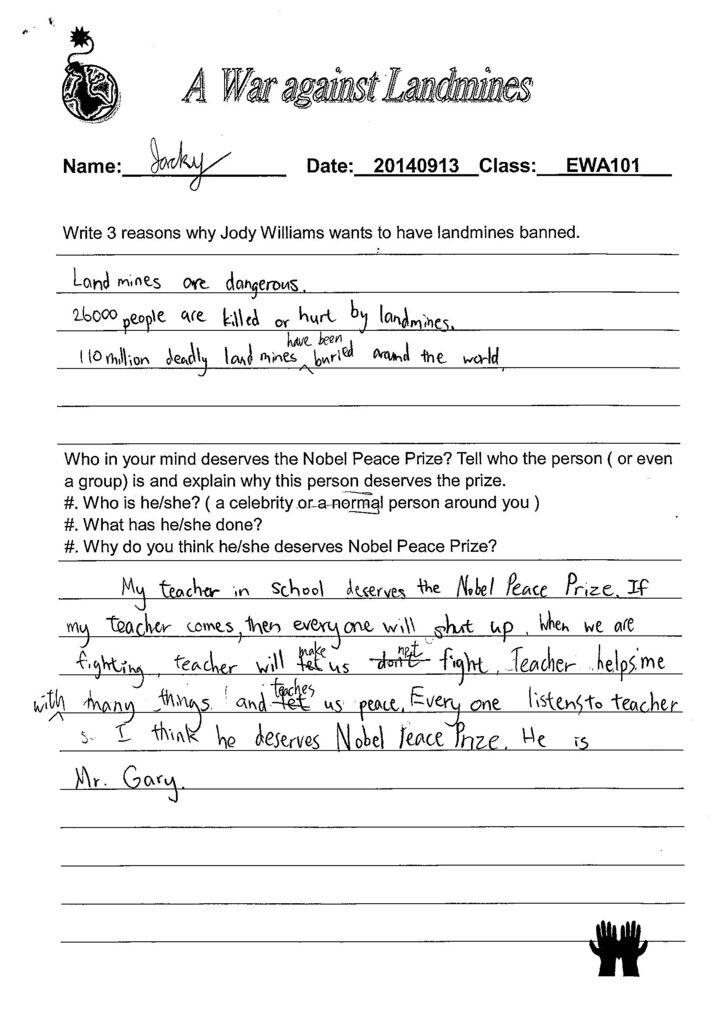 A War against Landmines
Name: Jacky Date: 20140913 Class: EWA101
Write 3 reasons why Jody Williams wants to have landmines banned.
Land mines are dangerous.
26000 people are killed or hurt by landmines.
have been
110 million deadly land mines buried around the world
Who in your mind deserves the Nobel Peace Prize? Tell who the person ( or even
a group) is and explain why this person deserves the prize.
#. Who is he/she? ( a celebrity or a normal person around you )
#. What has he/she done?
#. Why do you think he/she deserves Nobel Peace Prize?
My teacher in school deserves the Nobel Peace Prize. If
my teacher comes, then every one will shut up. When we are
make not
fighting, teacher will let us don't fight. Teacher helps me
teaches
with many things and let us peace. Every one listens to teacher
s. I think he deserves Nobel Peace Prize. He is
Mr. Gary.